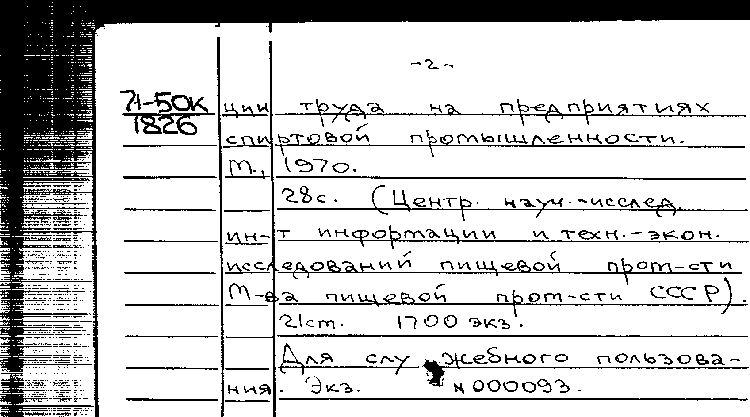 -2-
71-50К
1826
ции труда на предприятиях
спиртовой промышленности.
М., 1970.
28с. (Центр. науч.-исслед
ин-т информации и техн.-экон.
исследований пищевой пром-сти
М-ва пищевой пром-сти СССР).
21см. 1700 экз.
Для служебного пользова-
ния. Экз. N 000093.